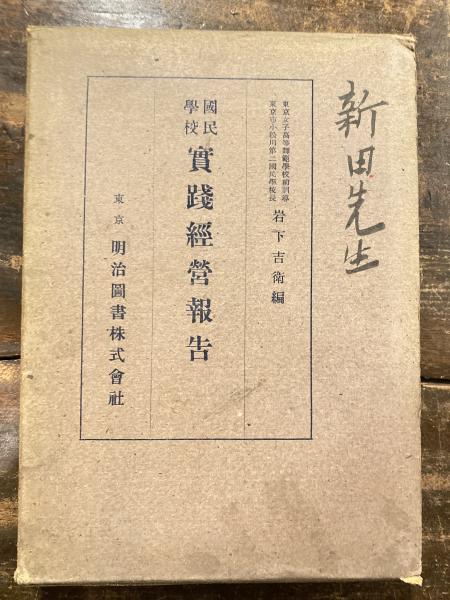 新田先生
東京女子高等師範學校前訓導
東京市小松川第二國民學校長
岩下吉衛編
國民學校
實踐經營報告
東京
明治圖書株式會社